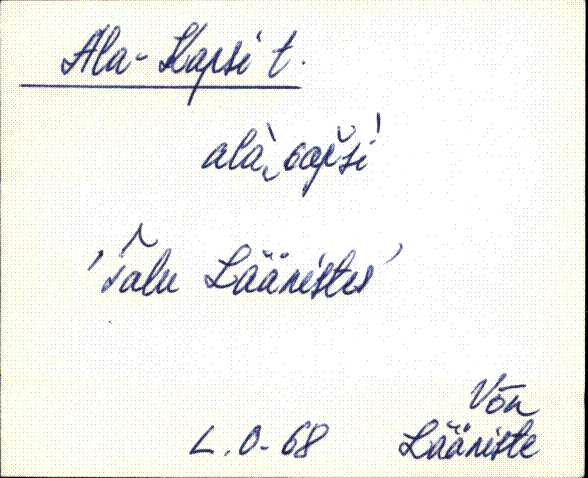 Ala-Kapsi t.
'Talu Läänistes'
L.O-68
Võn
Lääniste